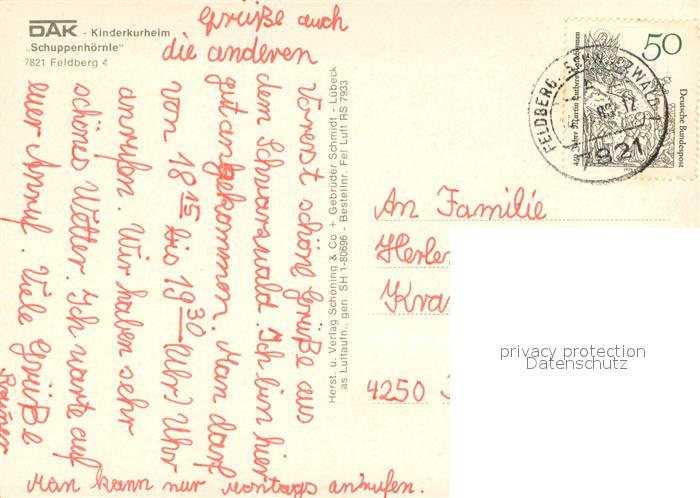 DAK - Kinderkurheim
„Schuppenhörnle"
7821 Feldberg 4
Grüße auch
die anderen
Vorerst schöne Grüße aus
dem Schwarzwald. Ich bin hier
gut angekommen. Man darf
von 18 15 bis 19 30 Uhr) Uhr
anrufen. Wir haben sehr
schönes Wetter. Ich warte auf
euer Anruf. Viele Grüße
Man kann nur Montags anrufen.
Herst. u. Verlag Schöning & Co + Gebrüder Schmidt - Lübeck
as Luftaufn., gen. SH 1-80696 - Bestellnr. Fel Luft RS 7933
50
Deutsche Bundespost
FELDBERG
7821
An Familie
4250
privacy protection
Datenschutz